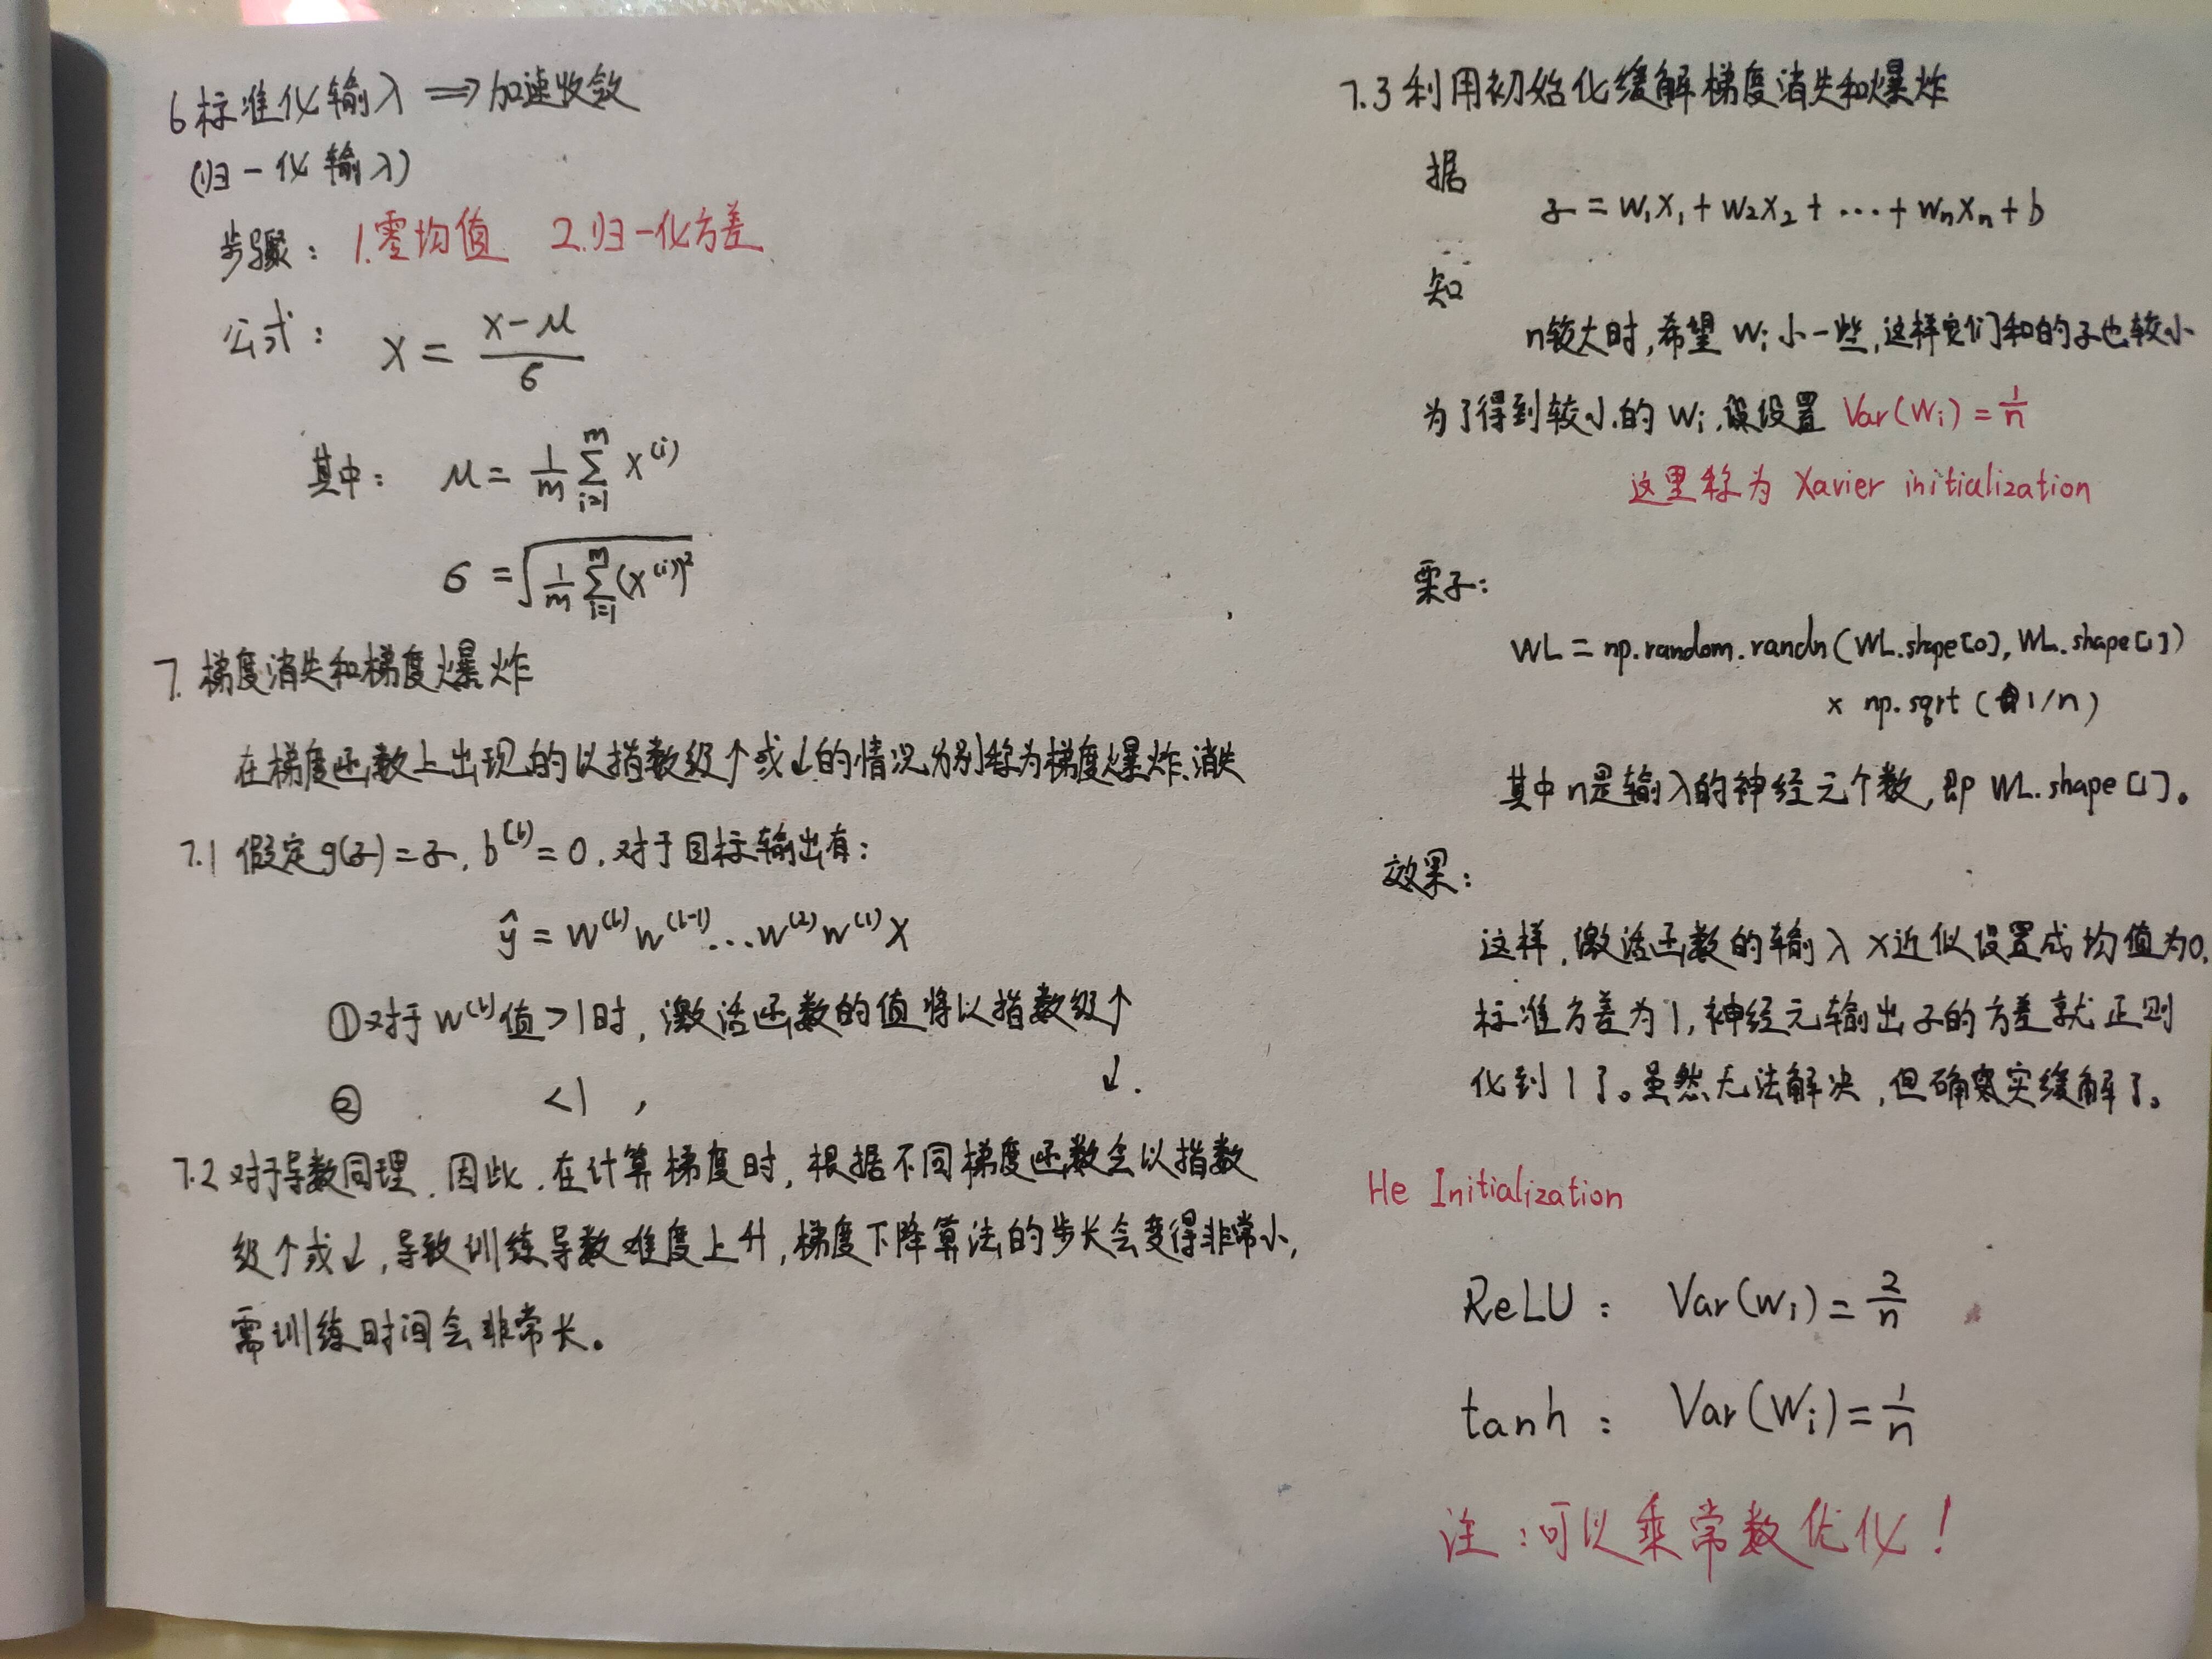 6 标准化输入 ⟹ 加速收敛
(归一化输入)
步骤: 1.零均值 2.归一化方差
公式: x = (x-μ)/σ
其中: μ = 1/m ∑_{i=1}^{m} x^{(i)}
σ = √(1/m ∑_{i=1}^{m} (x^{(i)})²)
7. 梯度消失和梯度爆炸
在梯度函数上出现的以指数级↑或↓的情况分别称为梯度爆炸、消失
7.1 假定 g(z)=z, b^{(L)}=0, 对于目标输出有:
ŷ = W^{(L)} W^{(L-1)} ... W^{(2)} W^{(1)} X
①对于 W^{(L)} 值>1时, 激活函数的值将以指数级↑
② <1 , ↓.
7.2 对于导数同理, 因此, 在计算梯度时, 根据不同梯度函数会以指数
级↑或↓, 导致训练导数难度上升, 梯度下降算法的步长会变得非常小,
需训练时间会非常长。
7.3 利用初始化缓解梯度消失和爆炸
据
z = w₁x₁ + w₂x₂ + ... + wₙxₙ + b
知
n较大时, 希望 wᵢ 小一些, 这样它们和的z也较小
为了得到较小的 wᵢ, 设置 Var(wᵢ) = 1/n
这里称为 Xavier initialization
栗子:
WL = np.random.randn(WL.shape[0], WL.shape[1])
× np.sqrt (1/n)
其中n是输入的神经元个数, 即 WL.shape[1]。
效果:
这样, 激活函数的输入 x近似设置成均值为0,
标准方差为1, 神经元输出z的方差就正则
化到1了。虽然无法解决, 但确实缓解了。
He Initialization
ReLU : Var(wᵢ) = 2/n
tanh : Var(wᵢ) = 1/n
注:可以乘常数优化!